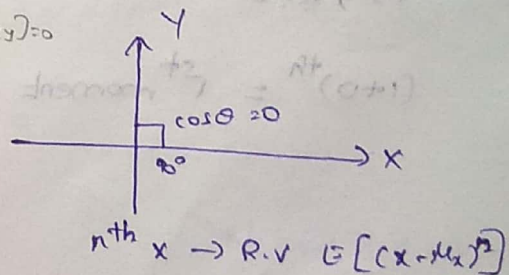 y)=0
Y
cosθ =0
90°
X
nth x → R.V E[(x-μx)n]